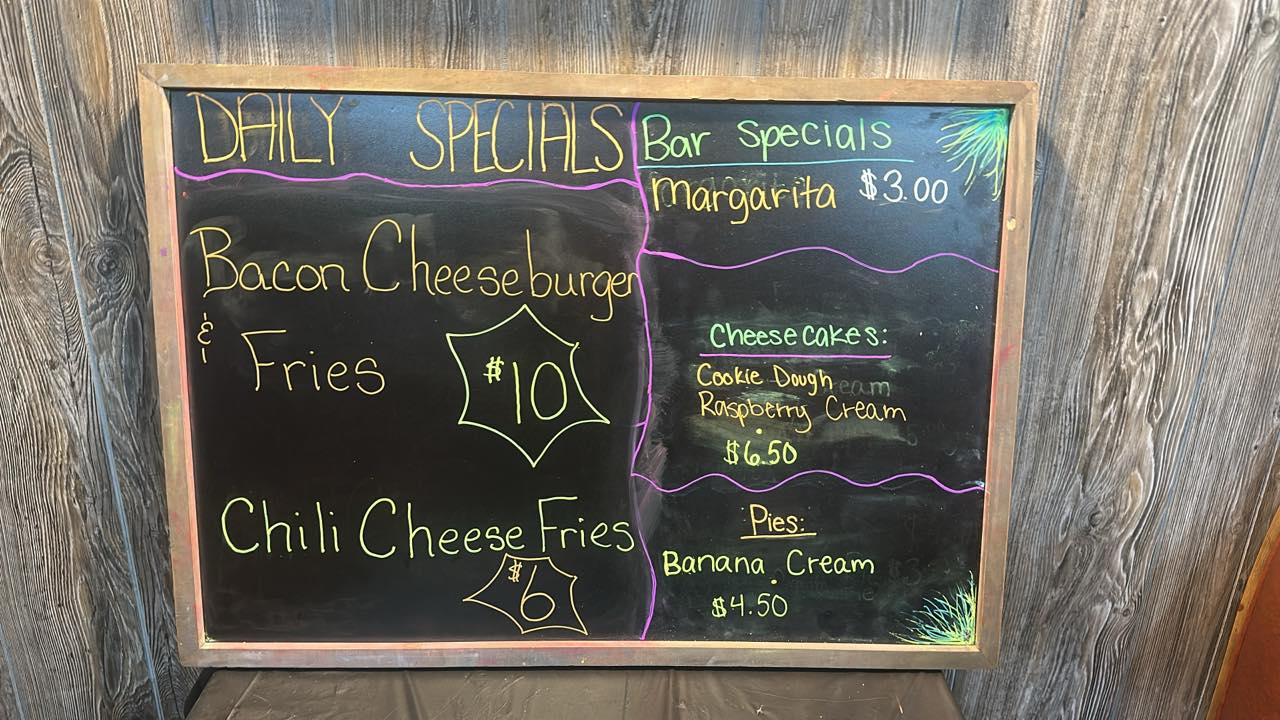 DAILY SPECIALS
Bacon Cheeseburger
&
Fries
$10
Chili Cheese Fries
$6
Bar Specials
Margarita $3.00
Cheesecakes:
Cookie Dough
Raspberry Cream
$6.50
Pies:
Banana Cream
$4.50